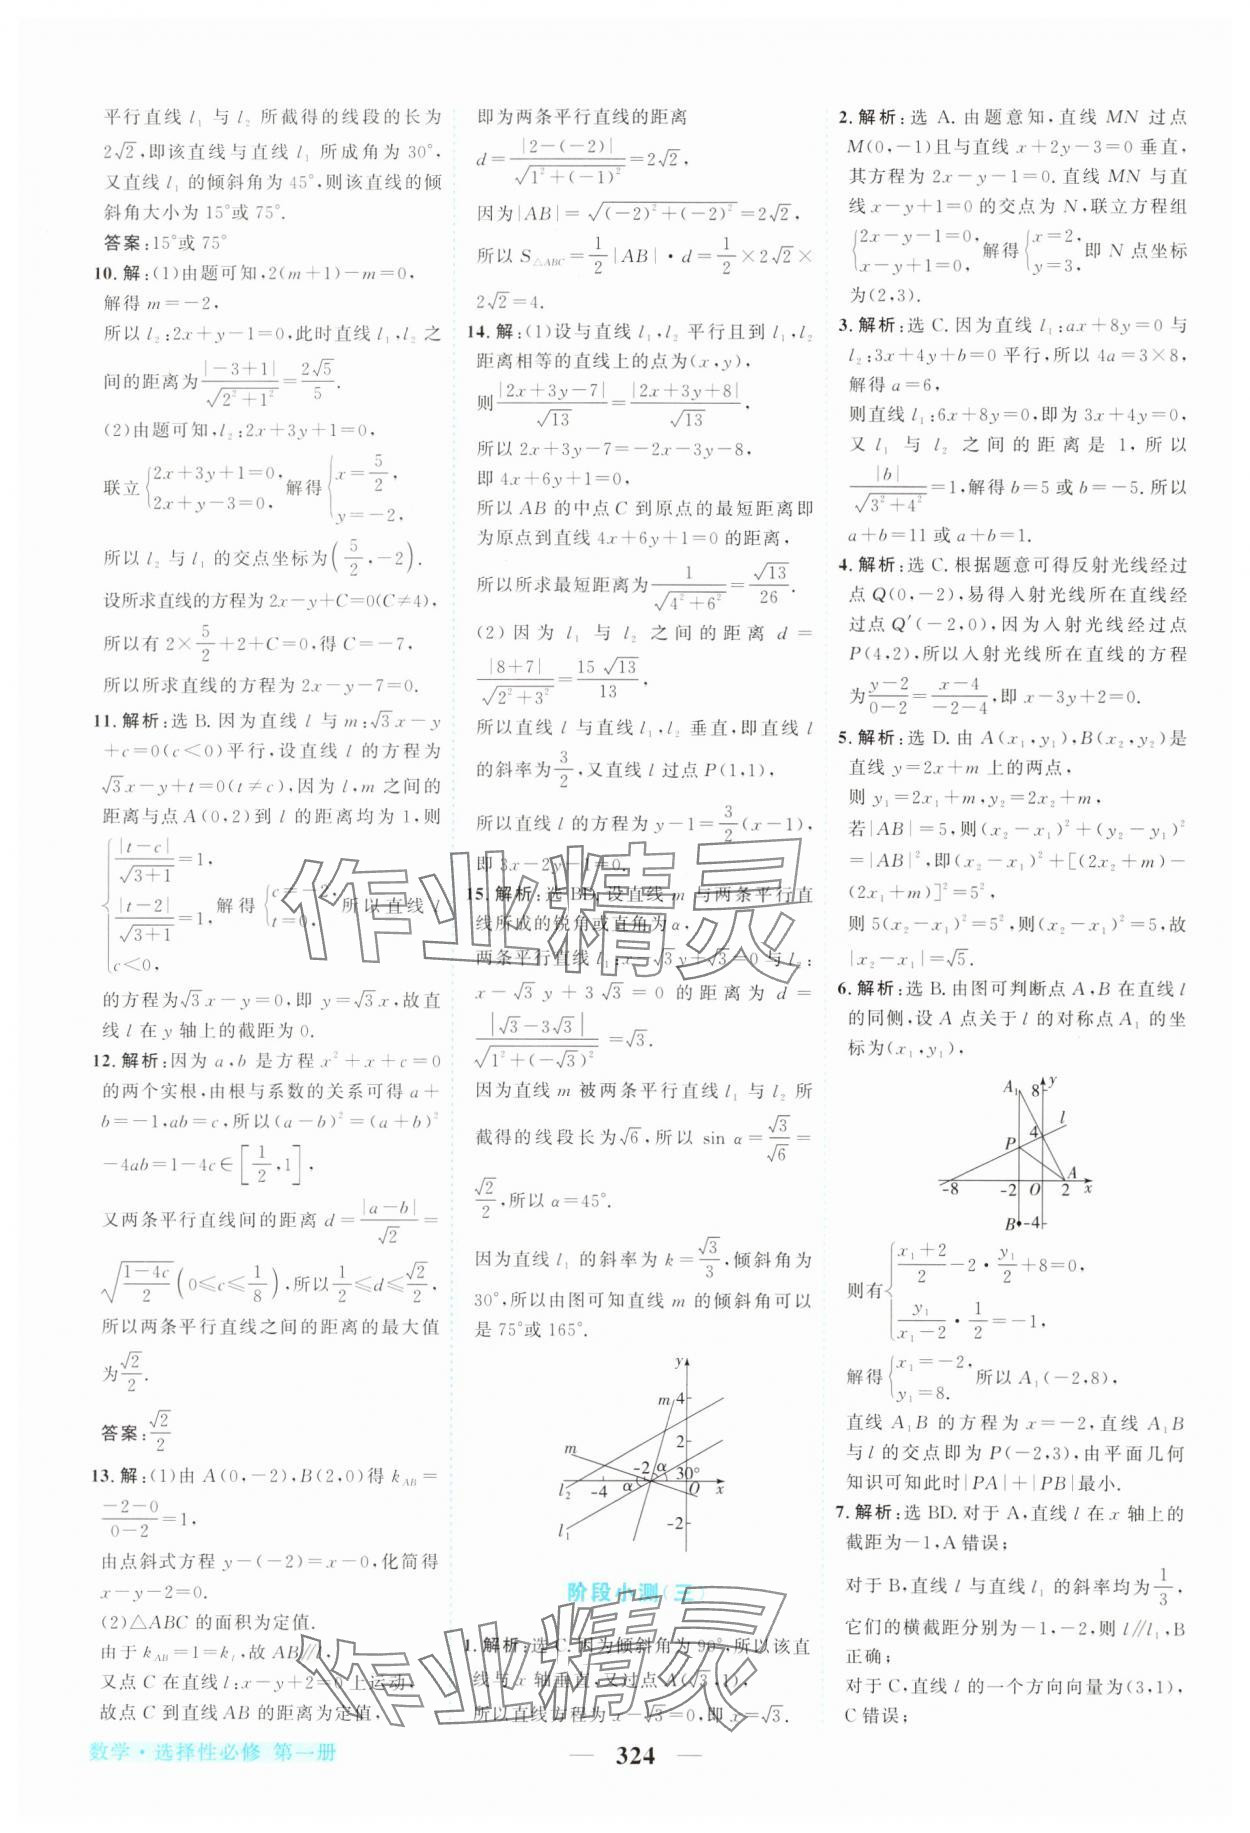 平行直线 l₁ 与 l₂ 所截得的线段的长为
2√2,即该直线与直线 l₁ 所成角为 30°,
又直线 l₁ 的倾斜角为 45°,则该直线的倾
斜角大小为 15°或 75°.
答案:15°或 75°
10. 解:(1)由题可知,2(m+1)-m=0,
解得 m=-2,
所以 l₂:2x+y-1=0,此时直线 l₁,l₂ 之
间的距离为 |-3+1|/√(2²+1²)=2√5/5.
(2)由题可知,l₂:2x+3y+1=0,
联立{2x+3y+1=0, 2x+y-3=0,解得{x=5/2, y=-2,
所以 l₂ 与 l₁ 的交点坐标为(5/2,-2).
设所求直线的方程为 2x-y+C=0(C≠4),
所以有 2×5/2+2+C=0,得 C=-7,
所以所求直线的方程为 2x-y-7=0.
11. 解析:选 B. 因为直线 l 与 m:√3x-y
+c=0(c<0)平行,设直线 l 的方程为
√3x-y+t=0(t≠c),因为 l,m 之间的
距离与点 A(0,2)到 l 的距离均为 1,则
{|t-c|/√(3+1)=1, |t-2|/√(3+1)=1, c<0, 解得{c=-2, t=0. 所以直线 l
的方程为√3x-y=0,即 y=√3x,故直
线 l 在 y 轴上的截距为 0.
12. 解析:因为 a,b 是方程 x²+x+c=0
的两个实根,由根与系数的关系可得 a+
b=-1,ab=c,所以(a-b)²=(a+b)²
-4ab=1-4c∈[1/2,1],
又两条平行直线间的距离 d=|a-b|/√2=
√((1-4c)/2)(0≤c≤1/8),所以1/2≤d≤√2/2,
所以两条平行直线之间的距离的最大值
为√2/2.
答案:√2/2
13. 解:(1)由 A(0,-2),B(2,0)得 k_AB=
(-2-0)/(0-2)=1,
由点斜式方程 y-(-2)=x-0,化简得
x-y-2=0.
(2)△ABC 的面积为定值.
由于 k_AB=1=k_l,故 AB//l,
又点 C 在直线 l:x-y+2=0 上运动,
故点 C 到直线 AB 的距离为定值,
即为两条平行直线的距离
d=|2-(-2)|/√(1²+(-1)²)=2√2,
因为|AB|=√((-2)²+(-2)²)=2√2,
所以 S_△ABC=1/2|AB|·d=1/2×2√2×
2√2=4.
14. 解:(1)设与直线 l₁,l₂ 平行且到 l₁,l₂
距离相等的直线上的点为(x,y),
则|2x+3y-7|/√13=|2x+3y+8|/√13,
所以 2x+3y-7=-2x-3y-8,
即 4x+6y+1=0,
所以 AB 的中点 C 到原点的最短距离即
为原点到直线 4x+6y+1=0 的距离,
所以所求最短距离为1/√(4²+6²)=√13/26.
(2)因为 l₁ 与 l₂ 之间的距离 d=
|8+7|/√(2²+3²)=15√13/13,
所以直线 l 与直线 l₁,l₂ 垂直,即直线 l
的斜率为3/2,又直线 l 过点 P(1,1),
所以直线 l 的方程为 y-1=3/2(x-1),
即 3x-2y-1=0.
15. 解析:选 BD. 设直线 m 与两条平行直
线所成的锐角或直角为 α,
两条平行直线 l₁:x-√3y+√3=0 与 l₂:
x-√3y+3√3=0 的距离为 d=
|√3-3√3|/√(1²+(-√3)²)=√3.
因为直线 m 被两条平行直线 l₁ 与 l₂ 所
截得的线段长为√6,所以 sin α=√3/√6=
√2/2,所以 α=45°.
因为直线 l₁ 的斜率为 k=√3/3,倾斜角为
30°,所以由图可知直线 m 的倾斜角可以
是 75°或 165°.
y
m 4
2
m
-2 α 30°
-4 α O x
l₂
-2
l₁
阶段小测(三)
1. 解析:选 C. 因为倾斜角为 90°,所以该直
线与 x 轴垂直,又过点 A(√3,1),
所以直线方程为 x-√3=0,即 x=√3.
2. 解析:选 A. 由题意知,直线 MN 过点
M(0,-1)且与直线 x+2y-3=0 垂直,
其方程为 2x-y-1=0. 直线 MN 与直
线 x-y+1=0 的交点为 N,联立方程组
{2x-y-1=0, x-y+1=0,解得{x=2, y=3,即 N 点坐标
为(2,3).
3. 解析:选 C. 因为直线 l₁:ax+8y=0 与
l₂:3x+4y+b=0 平行,所以 4a=3×8,
解得 a=6,
则直线 l₁:6x+8y=0,即为 3x+4y=0,
又 l₁ 与 l₂ 之间的距离是 1,所以
|b|/√(3²+4²)=1,解得 b=5 或 b=-5. 所以
a+b=11 或 a+b=1.
4. 解析:选 C. 根据题意可得反射光线经过
点 Q(0,-2),易得入射光线所在直线经
过点 Q′(-2,0),因为入射光线经过点
P(4,2),所以入射光线所在直线的方程
为(y-2)/(0-2)=(x-4)/(-2-4),即 x-3y+2=0.
5. 解析:选 D. 由 A(x₁,y₁),B(x₂,y₂)是
直线 y=2x+m 上的两点,
则 y₁=2x₁+m,y₂=2x₂+m,
若|AB|=5,则(x₂-x₁)²+(y₂-y₁)²
=|AB|²,即(x₂-x₁)²+[(2x₂+m)-
(2x₁+m)]²=5²,
则 5(x₂-x₁)²=5²,则(x₂-x₁)²=5,故
|x₂-x₁|=√5.
6. 解析:选 B. 由图可判断点 A,B 在直线 l
的同侧,设 A 点关于 l 的对称点 A₁ 的坐
标为(x₁,y₁),
A₁ 8 y
P 4 l
A
-8 -2 O 2 x
B -4
则有{(x₁+2)/2-2·y₁/2+8=0, y₁/(x₁-2)·1/2=-1,
解得{x₁=-2, y₁=8. 所以 A₁(-2,8),
直线 A₁B 的方程为 x=-2,直线 A₁B
与 l 的交点即为 P(-2,3),由平面几何
知识可知此时|PA|+|PB|最小.
7. 解析:选 BD. 对于 A,直线 l 在 x 轴上的
截距为-1,A 错误;
对于 B,直线 l 与直线 l₁ 的斜率均为1/3,
它们的横截距分别为-1,-2,则 l//l₁,B
正确;
对于 C,直线 l 的一个方向向量为(3,1),
C 错误;
数学·选择性必修 第一册
— 324 —
作业精灵
作业精灵